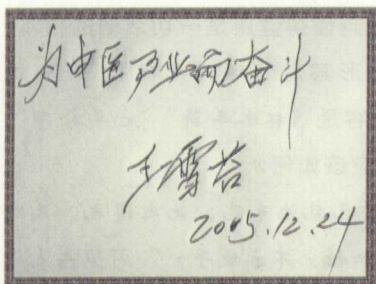 为中医药业而奋斗
毛雪苔
2005.12.24